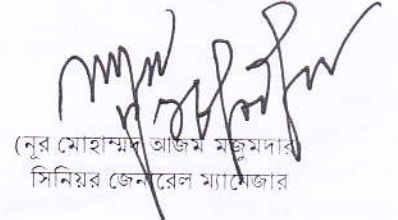 (নূর মোহাম্মদ আজম মজুমদার
সিনিয়র জেনারেল ম্যানেজার